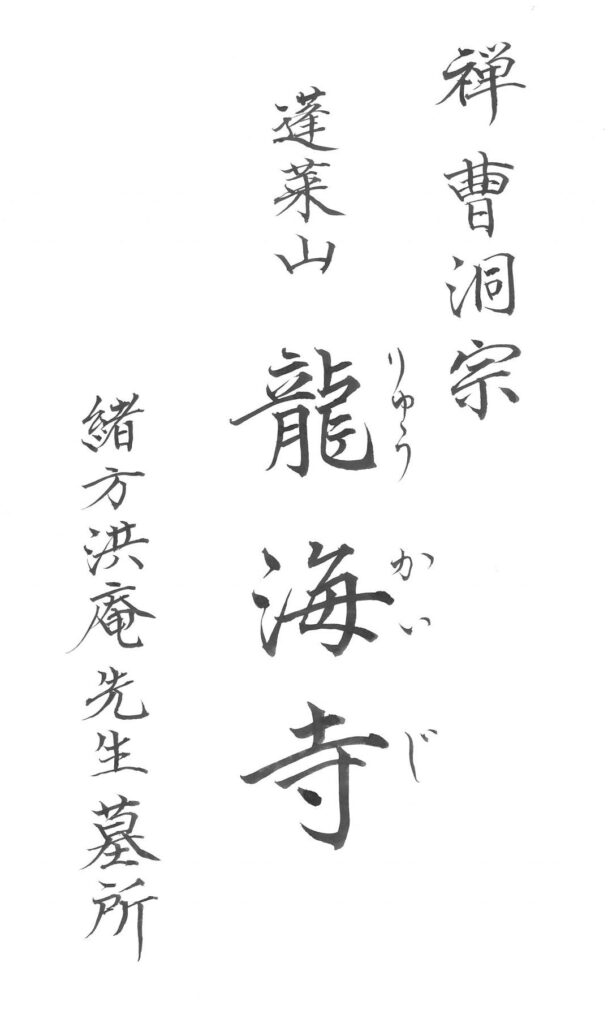 禅 曹洞宗
蓬莱山 龍海寺
りゅう かい じ
緒方洪庵先生墓所